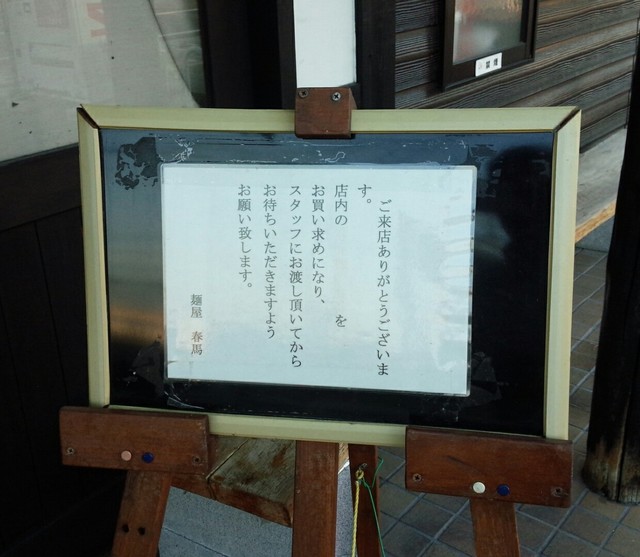 ご来店ありがとうございま
す。
店内の　　　　を
お買い求めになり、
スタッフにお渡し頂いてから
お待ちいただきますよう
お願い致します。
麺屋　春馬